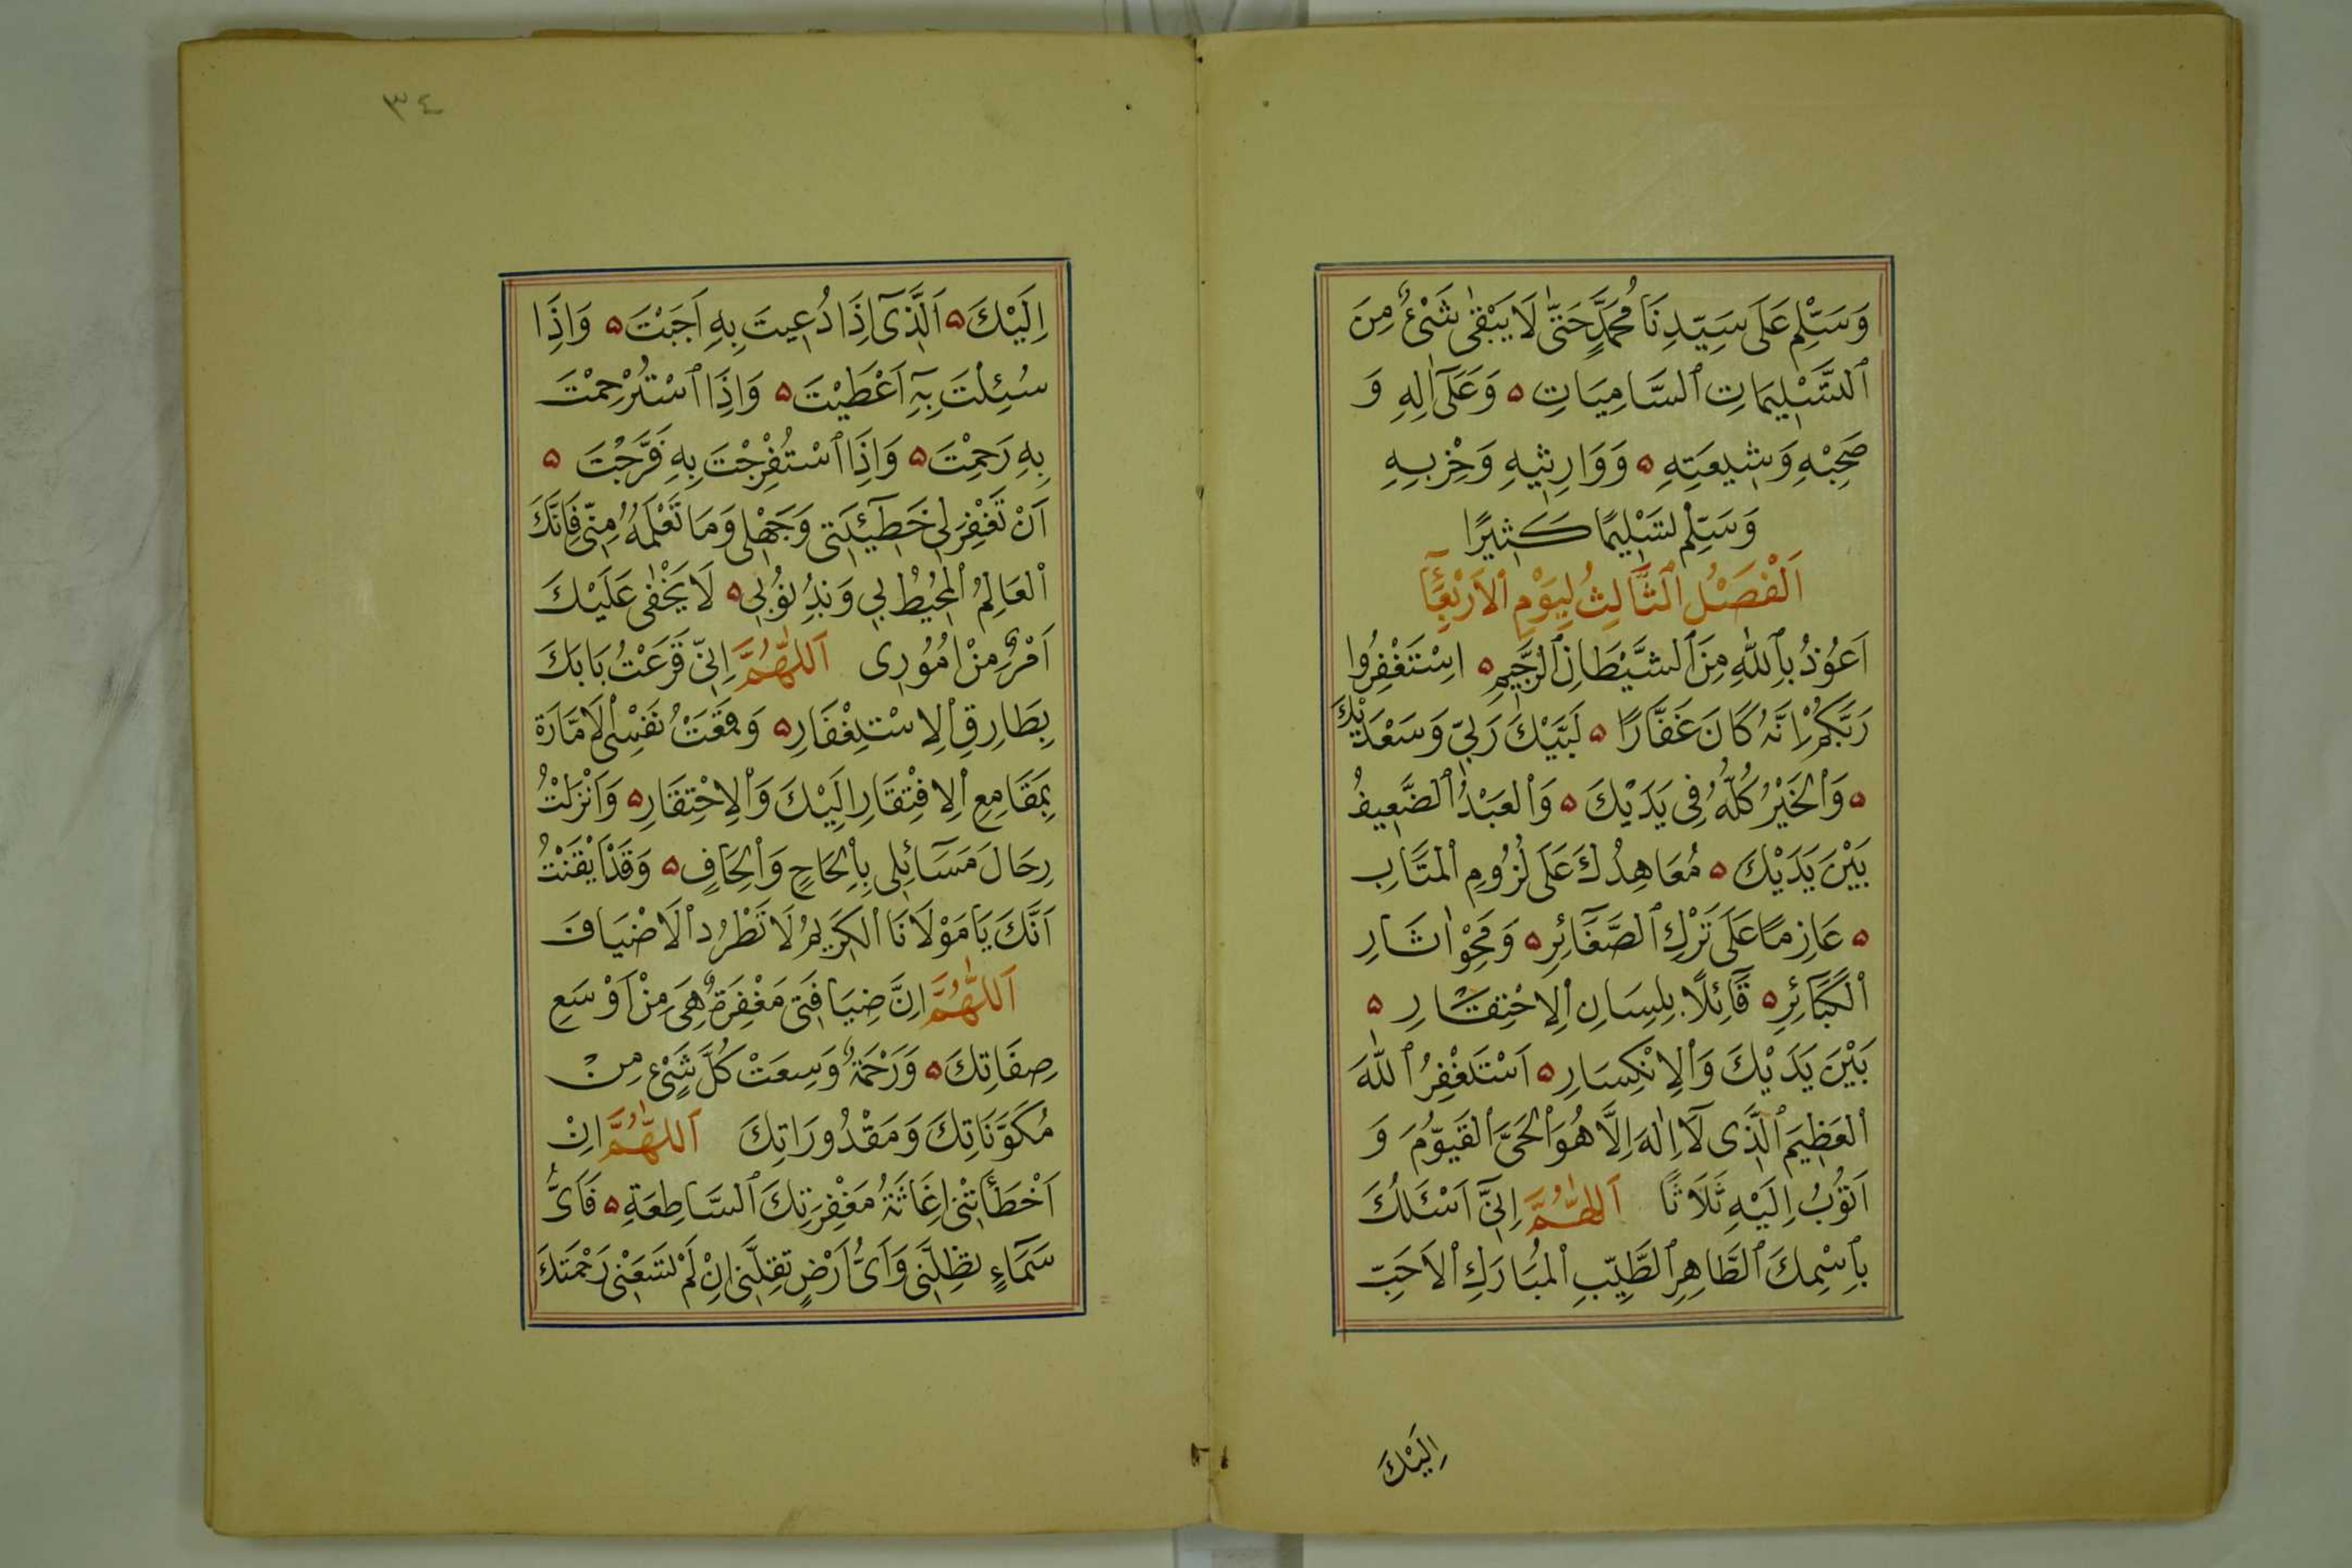 وَسَلِّمْ عَلَى سَيِّدِنَا مُحَمَّدٍ حَتّٰى لَا يَبْقٰى شَىْءٌ مِنَ
ٱلتَّسْلِيمَاتِ ٱلسَّامِيَاتِ ۵ وَعَلَىٓ اٰلِهِ وَ
صَحْبِهِ وَشِيعَتِهِ ۵ وَوَارِثِيهِ وَحِزْبِهِ
وَسَلِّمْ تَسْلِيمًا كَثِيرًا
اَلْفَصْلُ ٱلثَّالِثُ لِيَوْمِ ٱلْاَرْبِعَآءِ
اَعُوذُ بِٱللّٰهِ مِنَ ٱلشَّيْطَانِ ٱلرَّجِيمِ ۵ اسْتَغْفِرُوا
رَبَّكُمْ اِنَّهُ كَانَ غَفَّارًا ۵ لَبَّيْكَ رَبِّي وَسَعْدَيْكَ
۵ وَٱلْخَيْرُ كُلُّهُ فِي يَدَيْكَ ۵ وَٱلْعَبْدُ ٱلضَّعِيفُ
بَيْنَ يَدَيْكَ ۵ مُعَاهِدُكَ عَلَى لُزُومِ ٱلْمَتَابِ
۵ عَازِمًا عَلَى تَرْكِ ٱلصَّغَآئِرِ ۵ وَمَحْوِ اٰثَارِ
ٱلْكَبَآئِرِ ۵ قَآئِلًا بِلِسَانِ ٱلِاحْتِقَارِ ۵
بَيْنَ يَدَيْكَ وَٱلِانْكِسَارِ ۵ اَسْتَغْفِرُ ٱللّٰهَ
ٱلْعَظِيمَ ٱلَّذِى لَآ اِلٰهَ اِلَّا هُوَ ٱلْحَىَّ ٱلْقَيُّومَ وَ
اَتُوبُ اِلَيْهِ ثَلَاثًا اَللّٰهُمَّ اِنِّىٓ اَسْئَلُكَ
بِٱسْمِكَ ٱلطَّاهِرِ ٱلطَّيِّبِ ٱلْمُبَارَكِ ٱلْاَحَبِّ
اِلَيْكَ
٣٤
اِلَيْكَ ۵ اَلَّذِىٓ اِذَا دُعِيتَ بِهِ اَجَبْتَ ۵ وَاِذَا
سُئِلْتَ بِهِٓ اَعْطَيْتَ ۵ وَاِذَا ٱسْتُرْحِمْتَ
بِهِ رَحِمْتَ ۵ وَاِذَا ٱسْتُفْرِجْتَ بِهِ فَرَّجْتَ ۵
اَنْ تَغْفِرَ لِي خَطِيٓئَتِى وَجَهْلِى وَمَا تَعْلَمُهُ مِنِّى فَاِنَّكَ
ٱلْعَالِمُ ٱلْمُحِيْطُ بِي وَبِذُنُوبِي ۵ لَا يَخْفٰى عَلَيْكَ
اَمْرٌ مِنْ اُمُورِى اَللّٰهُمَّ اِنِّي قَرَعْتُ بَابَكَ
بِطَارِقِ ٱلِاسْتِغْفَارِ ۵ وَقَمَعْتُ نَفْسِي ٱلْاَمَّارَةَ
بِمَقَامِعِ ٱلِافْتِقَارِ اِلَيْكَ وَٱلِاحْتِقَارِ ۵ وَاَنْزَلْتُ
رِحَالَ مَسَآئِلِى بِاِلْحَاحٍ وَاِلْحَافٍ ۵ وَقَدْ اَيْقَنْتُ
اَنَّكَ يَا مَوْلَانَا ٱلْكَرِيمُ لَا تَطْرُدُ ٱلْاَضْيَافَ
اَللّٰهُمَّ اِنَّ ضِيَافَتِى مَغْفِرَةٌ هِىَ مِنْ اَوْسَعِ
صِفَاتِكَ ۵ وَرَحْمَةٌ وَسِعَتْ كُلَّ شَىْءٍ مِنْ
مُكَوَّنَاتِكَ وَمَقْدُورَاتِكَ اَللّٰهُمَّ اِنْ
اَخْطَأَتْنِى اِغَاثَةُ مَغْفِرَتِكَ ٱلسَّاطِعَةِ ۵ فَاَىُّ
سَمَآءٍ تُظِلُّنِى وَاَىُّ اَرْضٍ تُقِلُّنِى اِنْ لَمْ تَسَعْنِى رَحْمَتُكَ